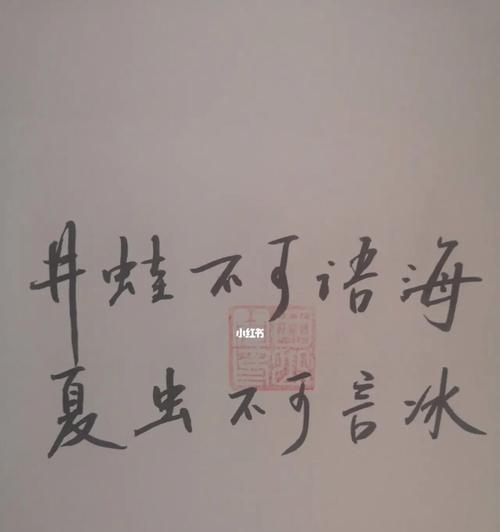 井蛙不可语海
小红书
夏虫不可言冰